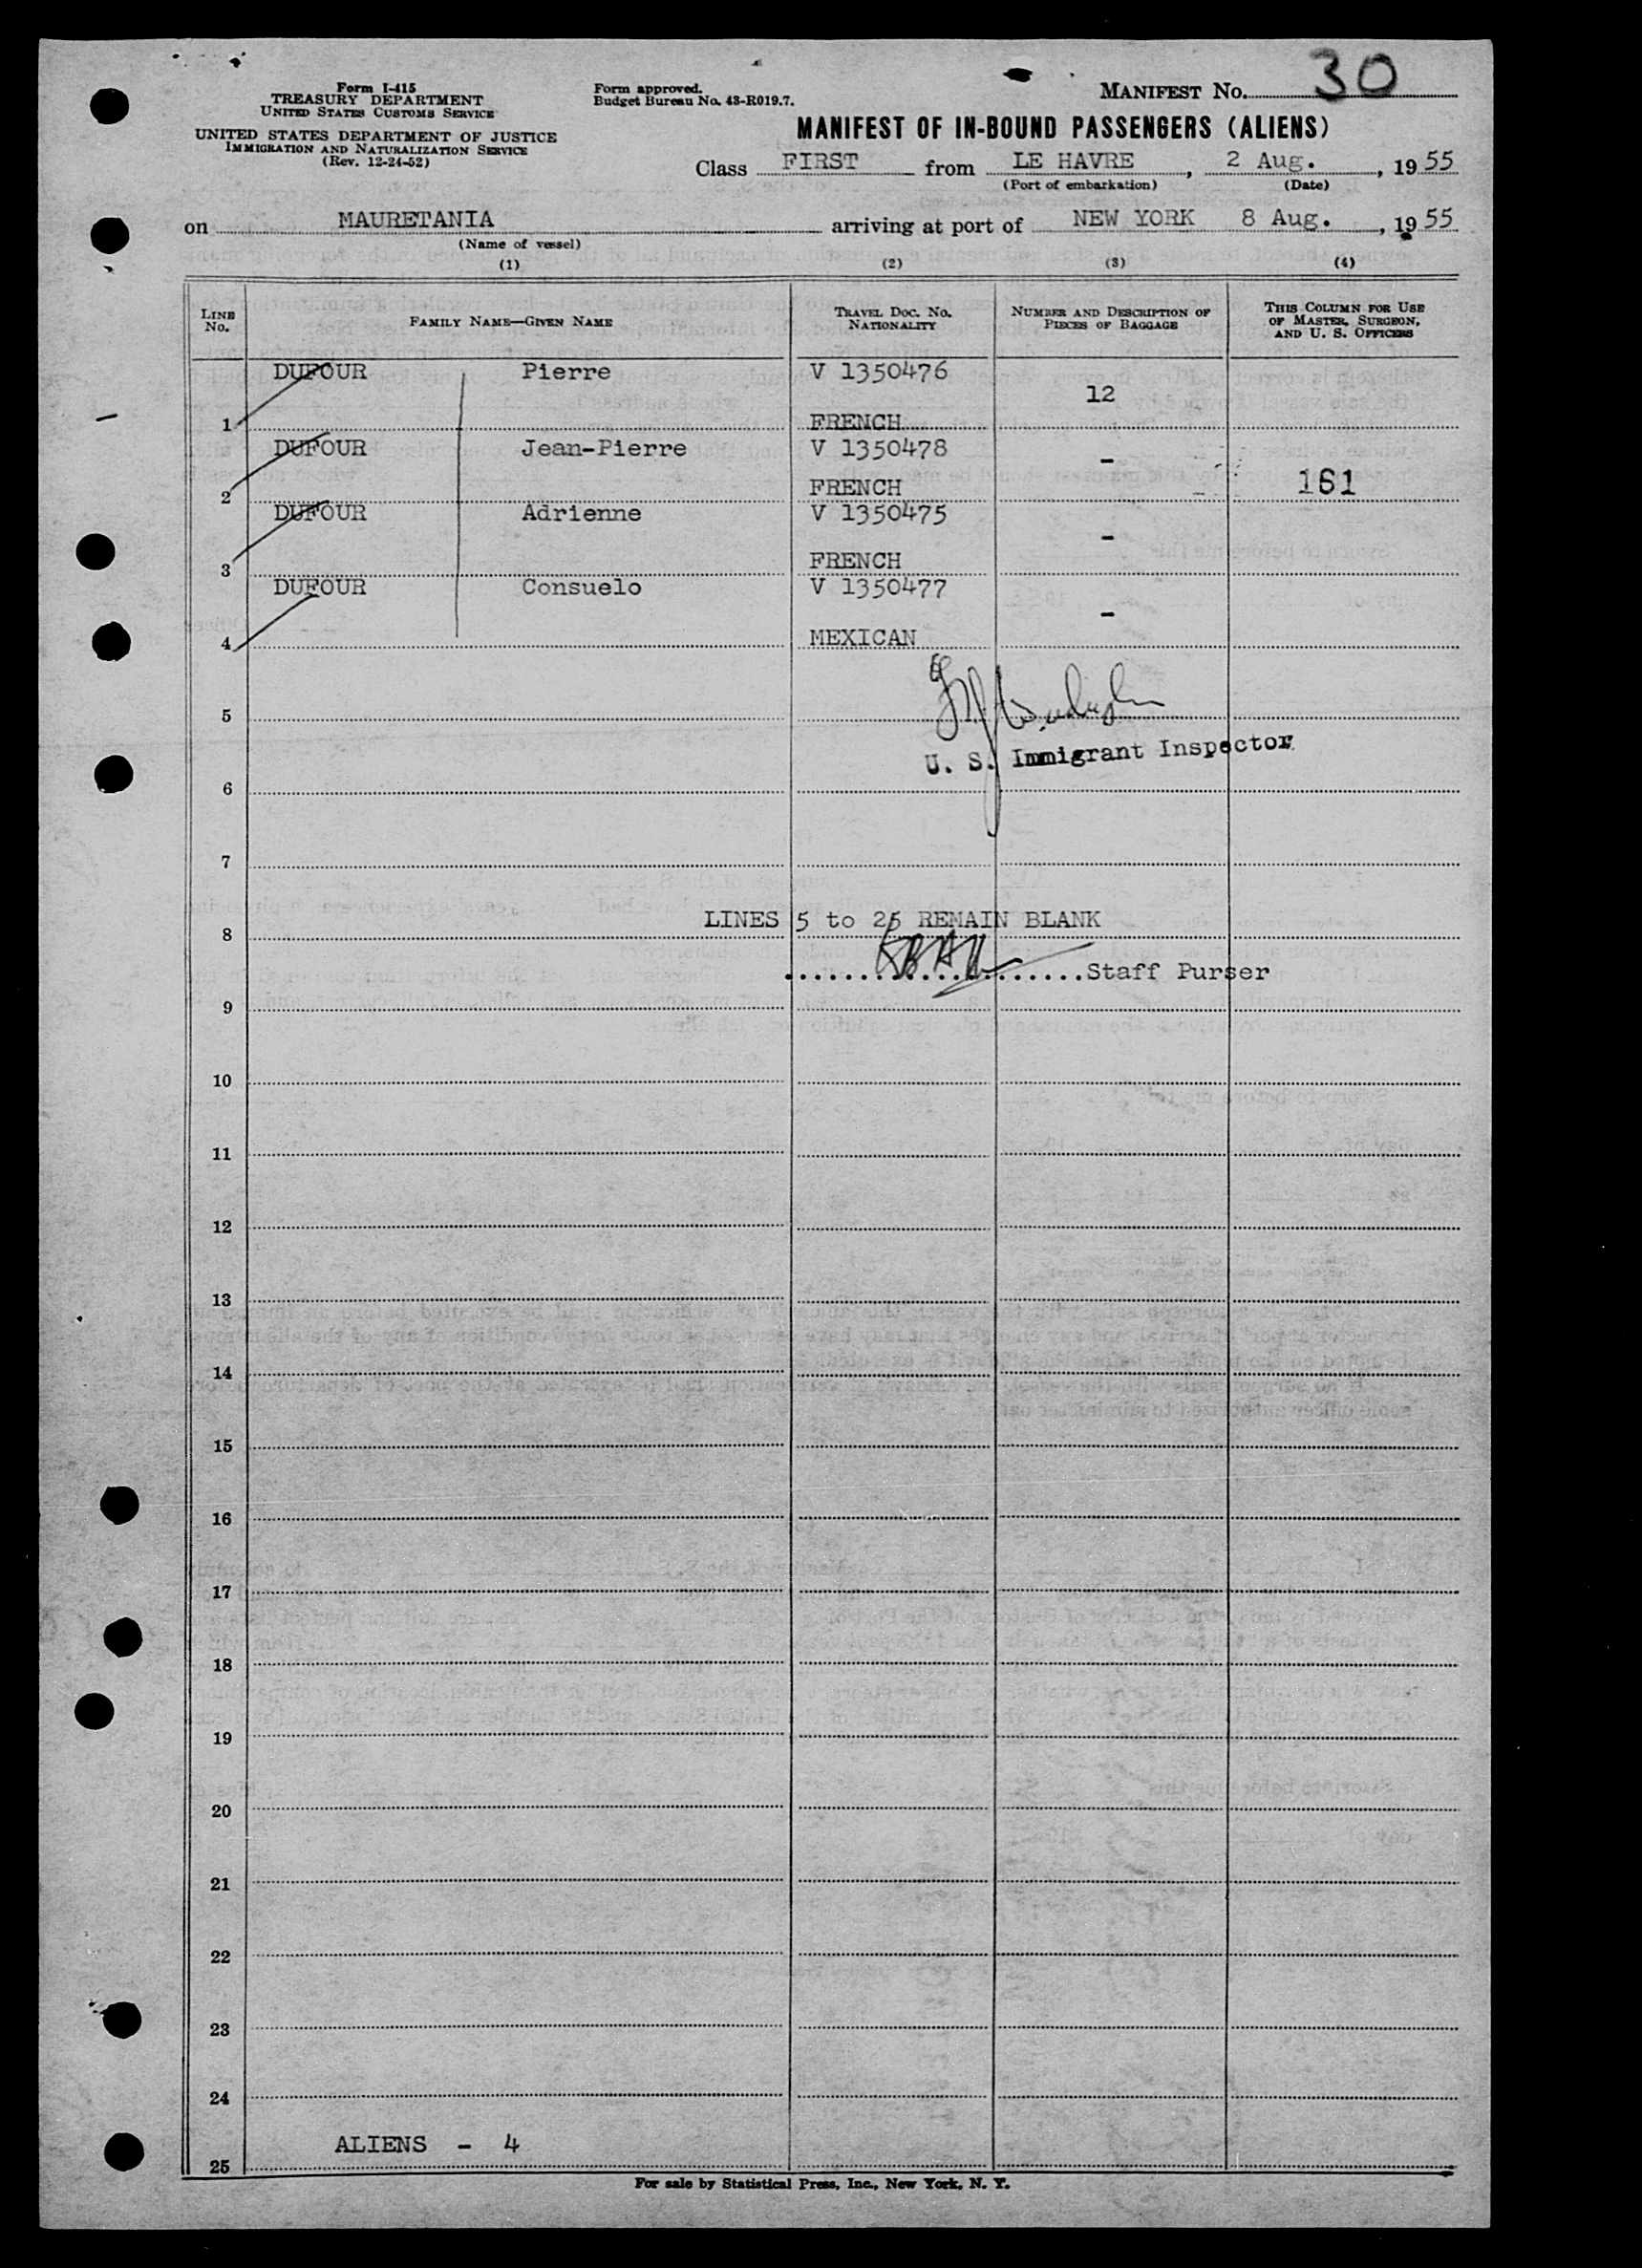 Form I-415
TREASURY DEPARTMENT
UNITED STATES CUSTOMS SERVICE
UNITED STATES DEPARTMENT OF JUSTICE
IMMIGRATION AND NATURALIZATION SERVICE
(Rev. 12-24-52)
Form approved.
Budget Bureau No. 43-R019.7.
MANIFEST NO. 30
MANIFEST OF IN-BOUND PASSENGERS (ALIENS)
Class FIRST from LE HAVRE, 2 Aug., 1955
(Port of embarkation) (Date)
on MAURETANIA arriving at port of NEW YORK 8 Aug., 1955
(Name of vessel)
(1) (2) (3) (4)
LINE NO. FAMILY NAME—GIVEN NAME TRAVEL DOC. NO. NATIONALITY NUMBER AND DESCRIPTION OF PIECES OF BAGGAGE THIS COLUMN FOR USE OF MASTER, SURGEON, AND U. S. OFFICERS
DUFOUR Pierre V 1350476
12
1 FRENCH
DUFOUR Jean-Pierre V 1350478
-
2 FRENCH 161
DUFOUR Adrienne V 1350475
-
3 FRENCH
DUFOUR Consuelo V 1350477
-
4 MEXICAN
5
U. S. Immigrant Inspector
6
7
LINES 5 to 25 REMAIN BLANK
8
Staff Purser
9
10
11
12
13
14
15
16
17
18
19
20
21
22
23
24
ALIENS - 4
25
For sale by Statistical Press, Inc., New York, N. Y.